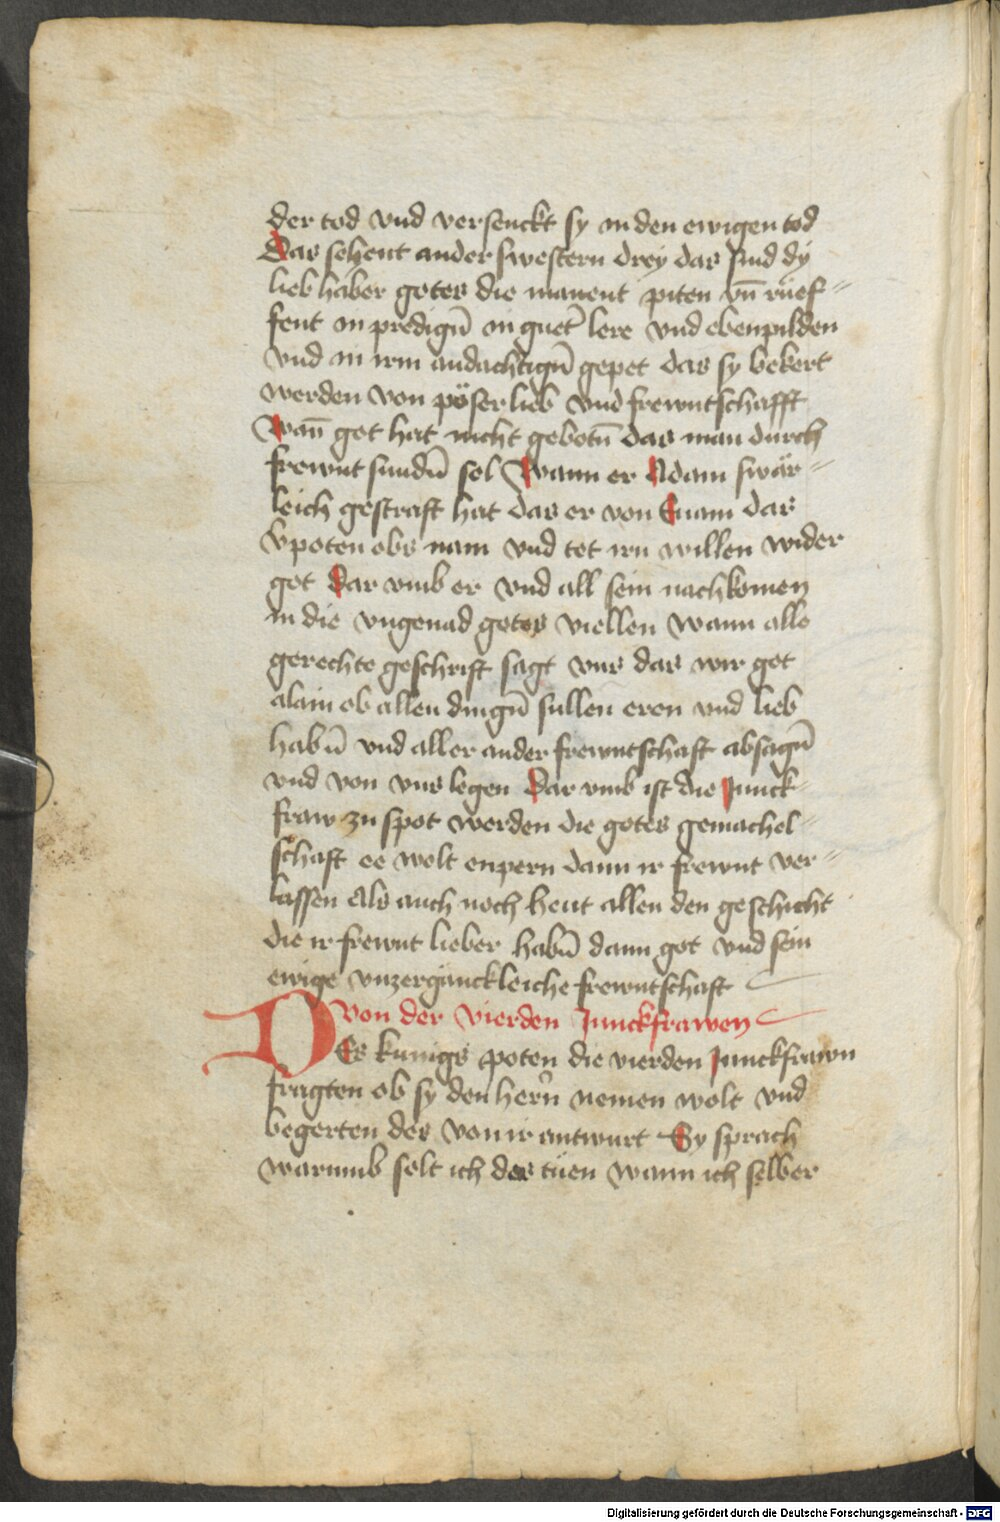 der tod vnd versenckt sy in den ewigen tod
Das sehent ander swestern drey das sind dy
liebhaber gotes die manent piten vn̄ rüef-
fent in predign̄ in guet̄ lere vnd ebenpilden
vnd in irm andachtign̄ gepet das sy bekert
werden von pöser lieb vnd frewntschafft
Wan̄ got hat nicht gebotn̄ das man durch
frewnt sundn̄ sol Wann er Adam swär-
leich gestraft hat das er von Euam das
vpoten obs nam vnd tet irn willen wider
got Dar vmb er vnd all sein nachkomen
in die vngenad gotes viellen Wann alle
gerechte geschrift sagt vns das wir got
alain ob allen dingn̄ sullen eren vnd lieb
habn̄ vnd aller ander frewntschaft absagn̄
vnd von vns legen Dar vmb ist die Junck-
fraw zu spot werden die gotes gemachel-
schaft ee wolt enpern dann ir frewnt ver-
lassen Als auch noch heut allen den geschicht
die ir frewnt lieber habn̄ dann got vnd sein
ewige vnzergänckleiche frewntschaft
Von der vierden Junckfrawen
DEs kunigs poten die vierden Junckfrawn
fragten ob sy den hern̄ nemen wolt vnd
begerten des von ir antwurt Sy sprach
warumb solt ich das tüen wann ich selber
Digitalisierung gefördert durch die Deutsche Forschungsgemeinschaft - DFG